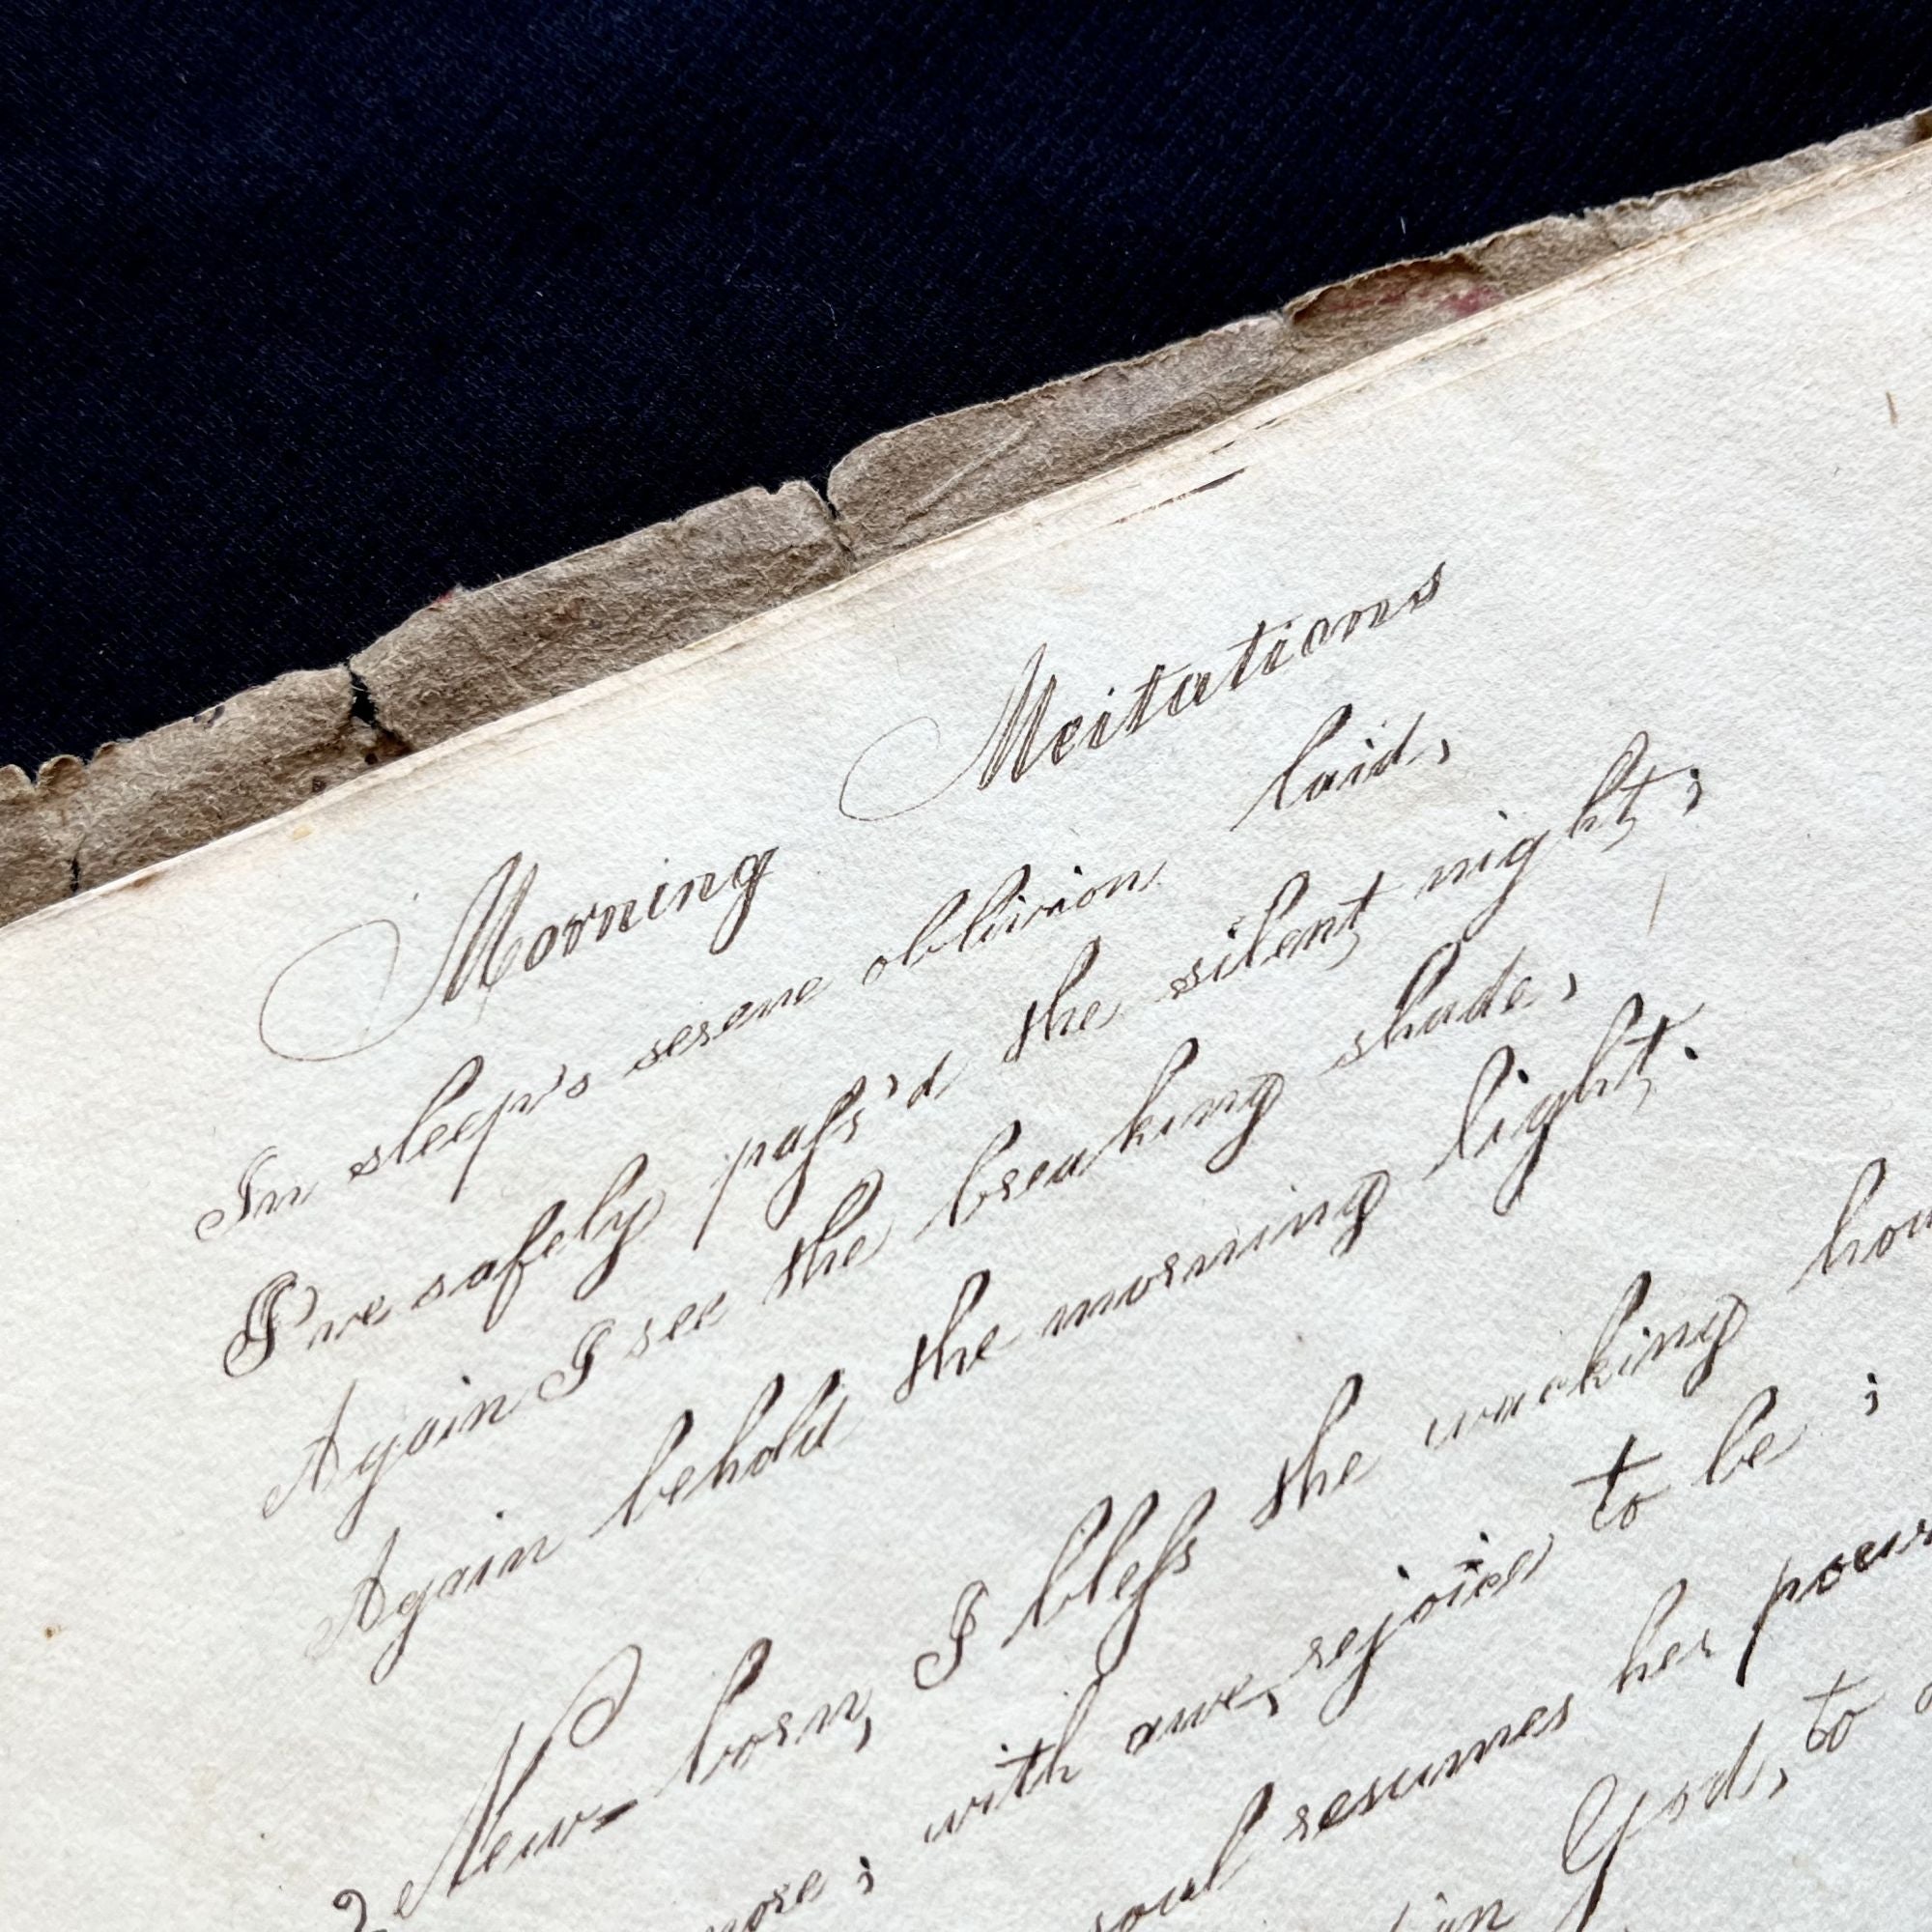 Morning Meitations
In sleep's serene oblivion laid,
I've safely pass'd the silent night;
Again I see the breaking shade,
Again behold the morning light.
2 New-born, I bless the wacking hou
more; with awe, rejoice to be;
soul resumes her power
in God, to